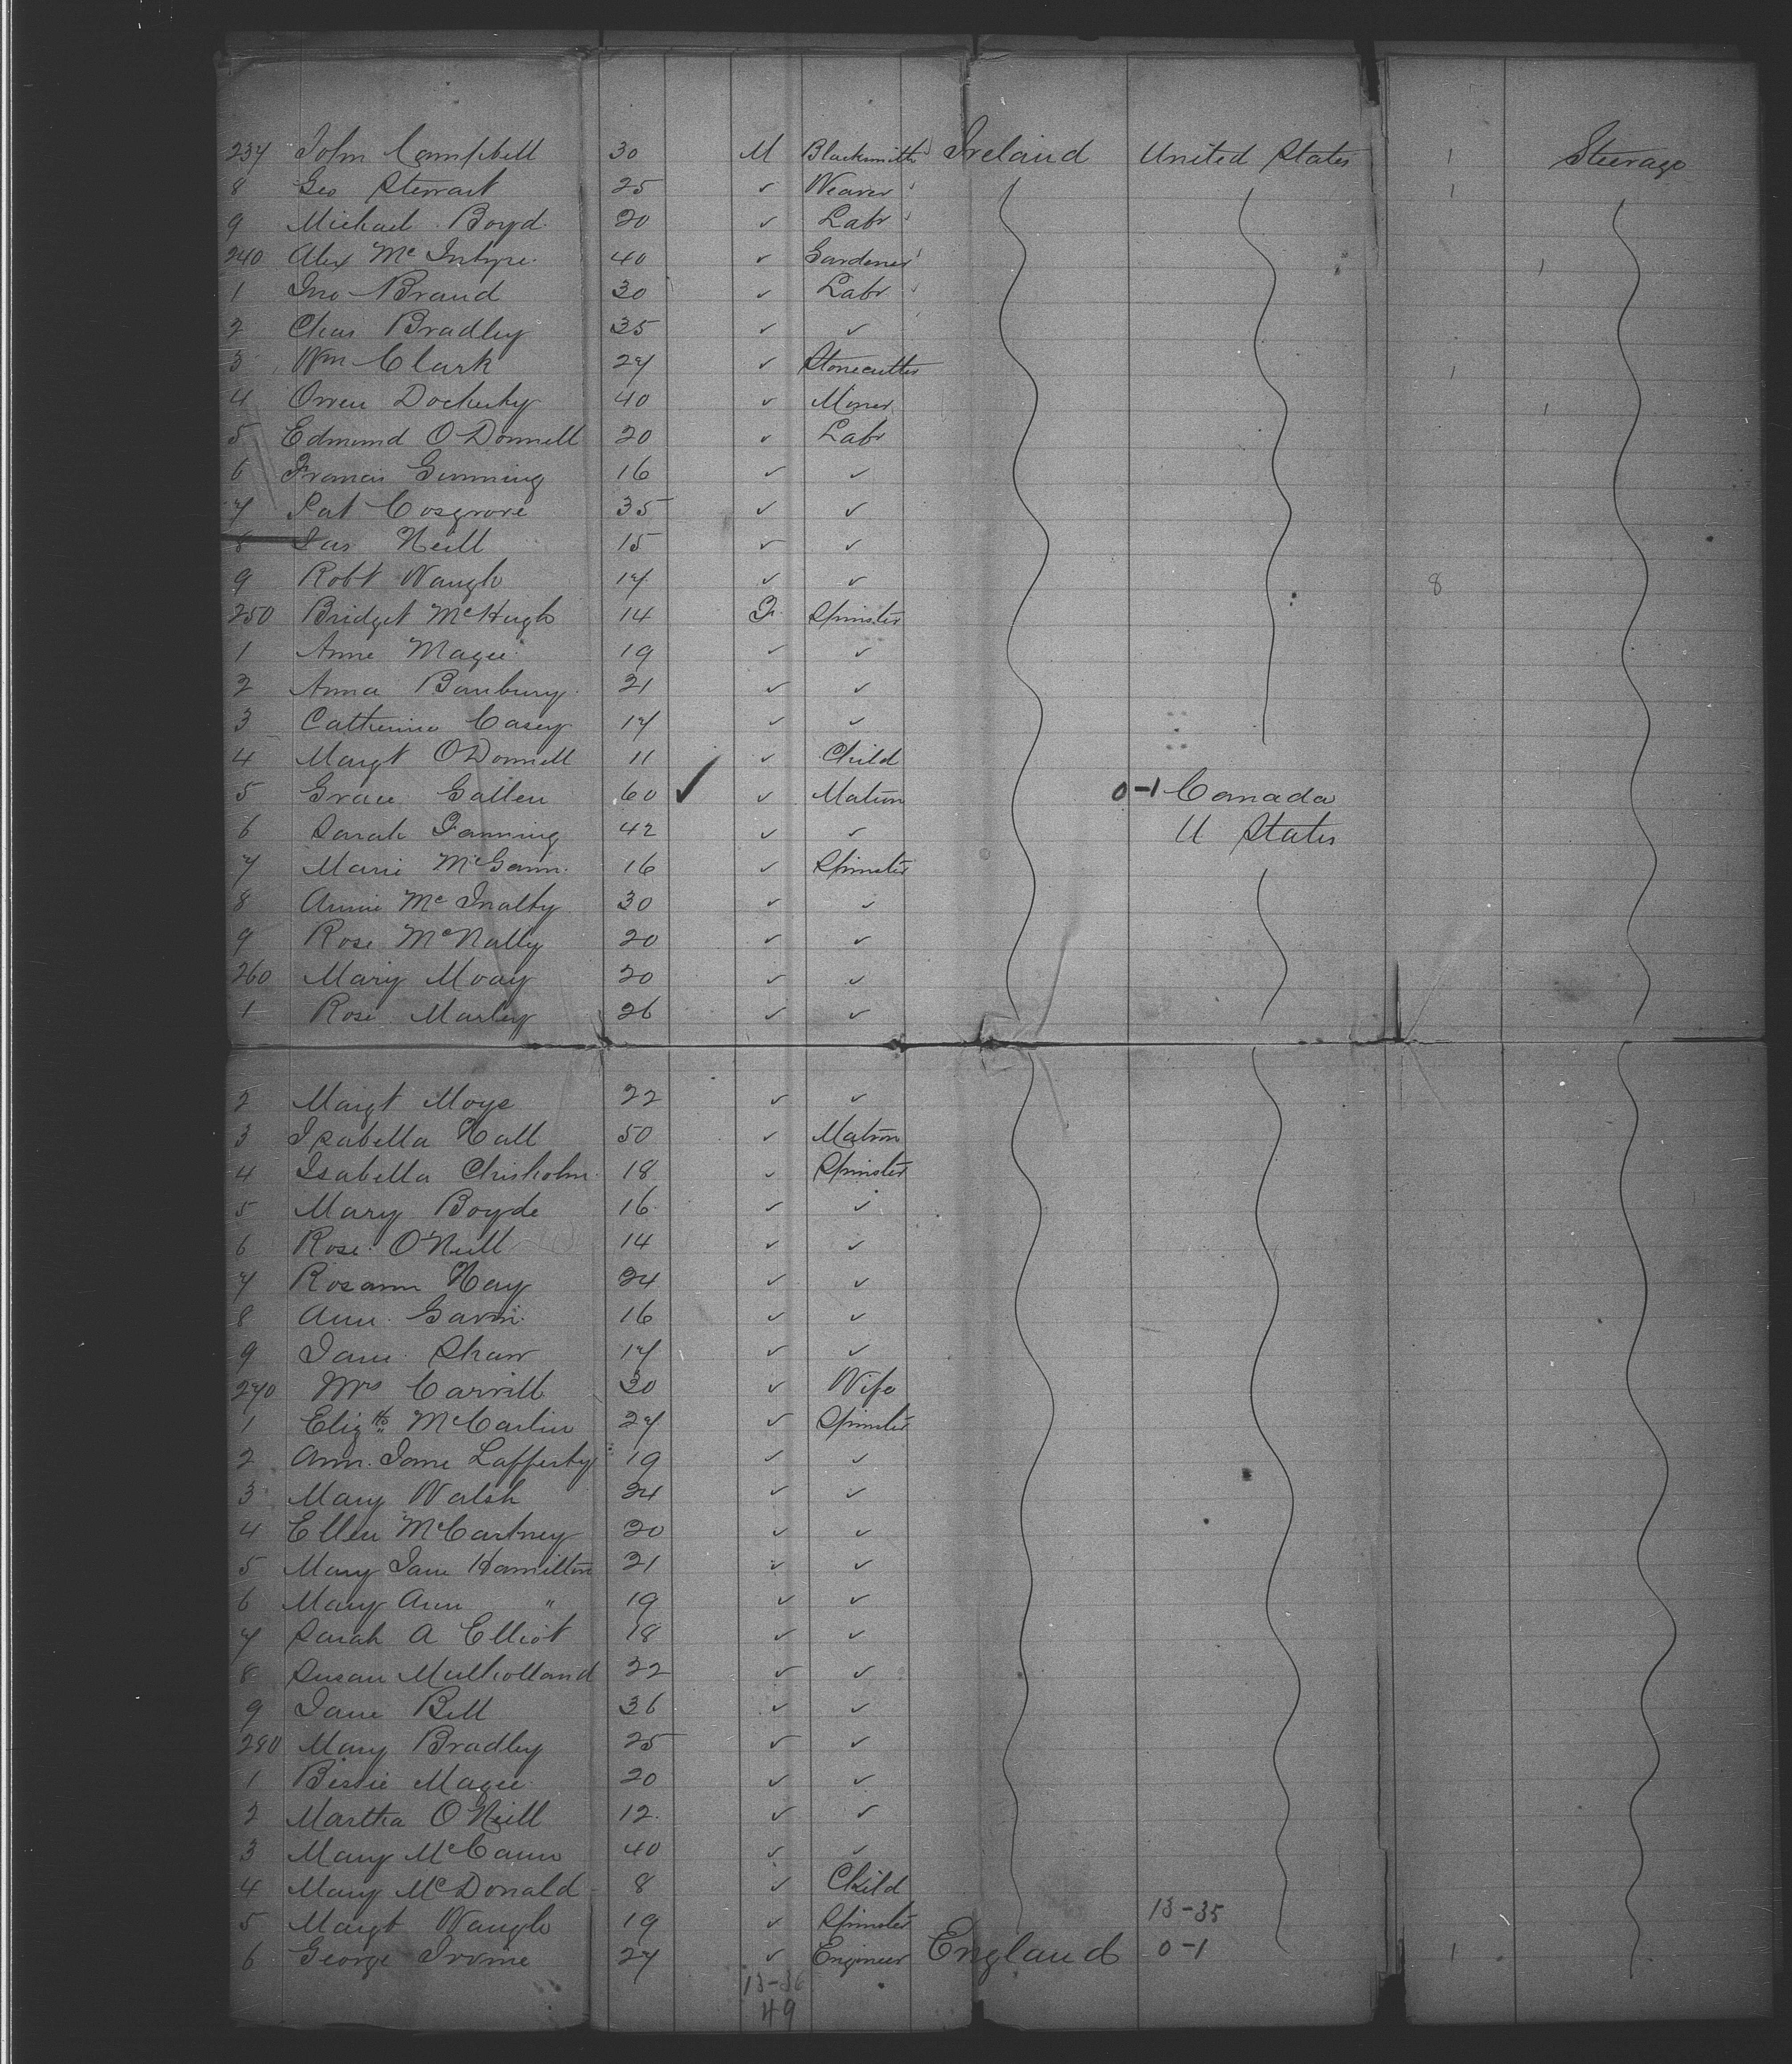 237 John Campbell 30 M Blacksmith Ireland United States 1 Steerage
8 Geo Stewart 25 ✓ Weaver 1
9 Michael Boyd 20 ✓ Labr
240 Alex Mc Intyre 40 ✓ Gardener 1
1 Jno Brand 30 ✓ Labr
2 Chas Bradley 35 ✓ ✓
3 Wm Clark 27 ✓ Stonecutter 1
4 Owen Docherty 40 ✓ Miner 1
5 Edmund O'Donnell 20 ✓ Labr
6 Francis Gunning 16 ✓ ✓
7 Pat Cosgrove 35 ✓ ✓
8 Jas Neill 15 ✓ ✓
9 Robt Waugh 17 ✓ ✓ 8
250 Bridget McHugh 14 F Spinster
1 Anne Magee 19 ✓ ✓
2 Anna Banbury 21 ✓ ✓
3 Catherine Casey 17 ✓ ✓
4 Margt O'Donnell 11 ✓ Child
5 Grace Gallen 60 ✓ ✓ Matron 0-1 Canada
6 Sarah Fanning 42 ✓ ✓ U States
7 Marie McGann 16 ✓ Spinster
8 Annie Mc Inalty 30 ✓ ✓
9 Rose McNally 20 ✓ ✓
260 Mary Moay 20 ✓ ✓
1 Rose Marley 26 ✓ ✓
2 Margt Moye 22 ✓ ✓
3 Isabella Hall 50 ✓ Matron
4 Isabella Chisholm 18 ✓ Spinster
5 Mary Boyde 16 ✓ ✓
6 Rose O'Neill 14 ✓ ✓
7 Rosann Hay 24 ✓ ✓
8 Ann Gavin 16 ✓ ✓
9 Jane Shaw 17 ✓ ✓
270 Mrs Carvill 30 ✓ Wife
1 Elizth McCarlin 27 ✓ Spinster
2 Ann Jane Lafferty 19 ✓ ✓
3 Mary Walsh 24 ✓ ✓
4 Ellen McCartney 20 ✓ ✓
5 Mary Jane Hamilton 21 ✓ ✓
6 Mary Ann " 19 ✓ ✓
7 Sarah A Elliot 18 ✓ ✓
8 Susan Mulholland 22 ✓ ✓
9 Jane Bell 36 ✓ ✓
280 Mary Bradley 25 ✓ ✓
1 Bessie Magee 20 ✓ ✓
2 Martha O'Neill 12 ✓ ✓
3 Mary McCann 40 ✓ ✓
4 Mary McDonald 8 ✓ Child
5 Margt Waugh 19 ✓ Spinster 13-35
6 George Irvine 27 ✓ Engineer England 0-1 1
13-36
49